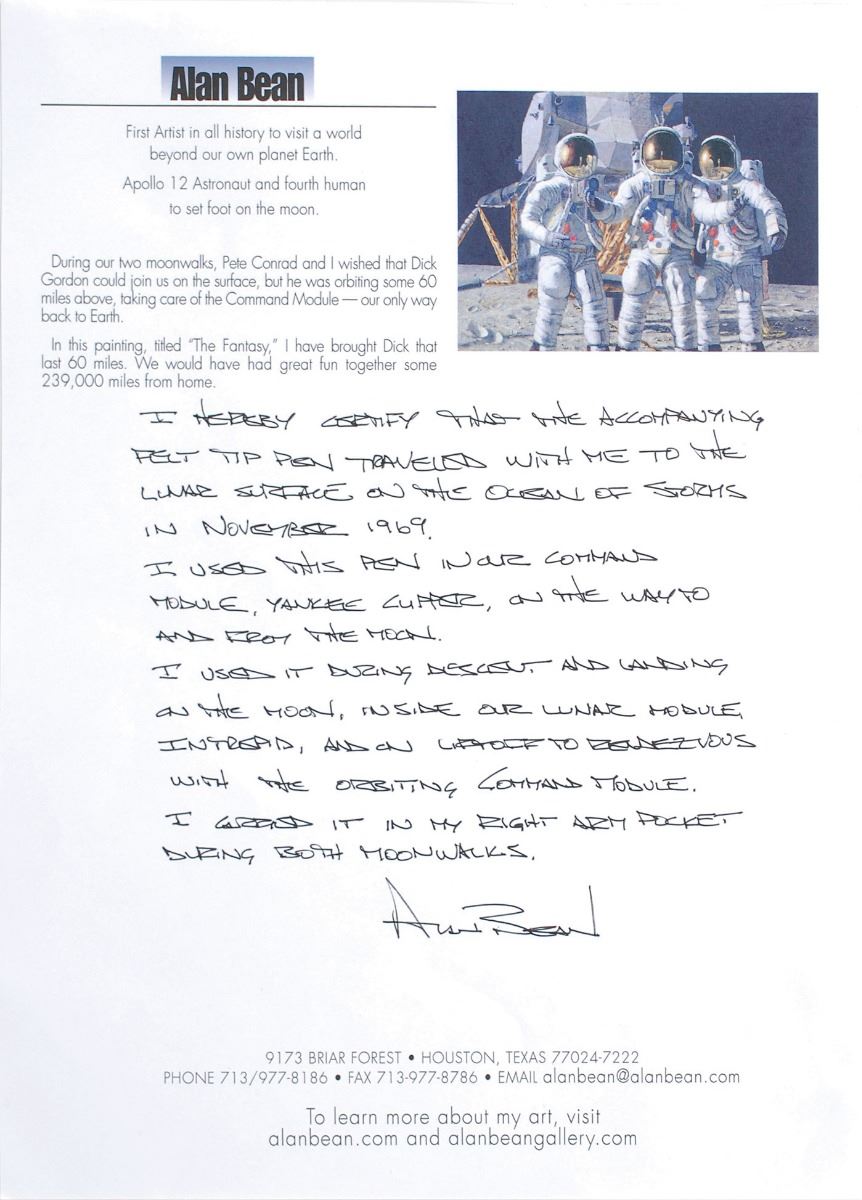 Alan Bean
First Artist in all history to visit a world
beyond our own planet Earth.
Apollo 12 Astronaut and fourth human
to set foot on the moon.
During our two moonwalks, Pete Conrad and I wished that Dick
Gordon could join us on the surface, but he was orbiting some 60
miles above, taking care of the Command Module — our only way
back to Earth.
In this painting, titled “The Fantasy,” I have brought Dick that
last 60 miles. We would have had great fun together some
239,000 miles from home.
I HEREBY CERTIFY THAT THE ACCOMPANYING
FELT TIP PEN TRAVELED WITH ME TO THE
LUNAR SURFACE ON THE OCEAN OF STORMS
IN NOVEMBER 1969.
I USED THIS PEN IN OUR COMMAND
MODULE, YANKEE CLIPPER, ON THE WAY TO
AND FROM THE MOON.
I USED IT DURING DESCENT AND LANDING
ON THE MOON, INSIDE OUR LUNAR MODULE,
INTREPID, AND ON LIFTOFF TO RENDEZVOUS
WITH THE ORBITING COMMAND MODULE.
I CARRIED IT IN MY RIGHT ARM POCKET
DURING BOTH MOONWALKS.
ALAN BEAN
9173 BRIAR FOREST • HOUSTON, TEXAS 77024-7222
PHONE 713/977-8186 • FAX 713-977-8786 • EMAIL alanbean@alanbean.com
To learn more about my art, visit
alanbean.com and alanbeangallery.com